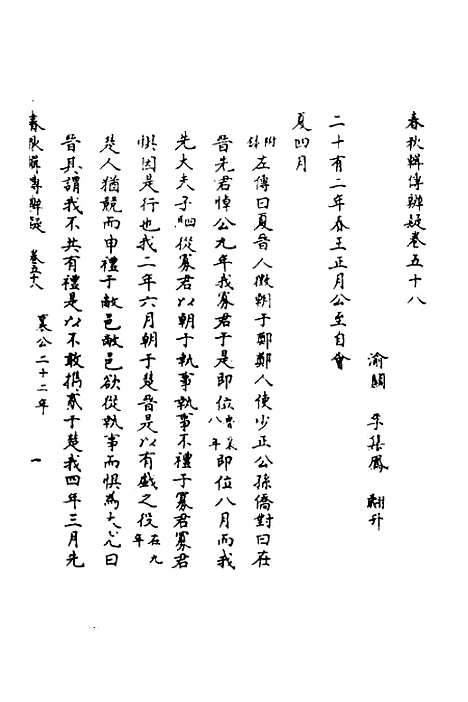 春秋輯傳辨疑卷五十八
渝關 李集鳳 翽升
二十有二年春王正月公至自會
夏四月
附錄左傳曰夏晉人徵朝于鄭鄭人使少正公孫僑對曰在
晉先君悼公九年我寡君于是即位魯襄八年即位八月而我
先大夫子駟從寡君以朝于執事執事不禮于寡君寡君
懼因是行也我二年六月朝于楚晉是以有戲之役在九年
楚人猶競而申禮于敝邑敝邑欲從執事而懼為大尤曰
晉其謂我不共有禮是以不敢攜貳于楚我四年三月先
春秋輯傳辨疑 卷五十八 襄公二十二年 一